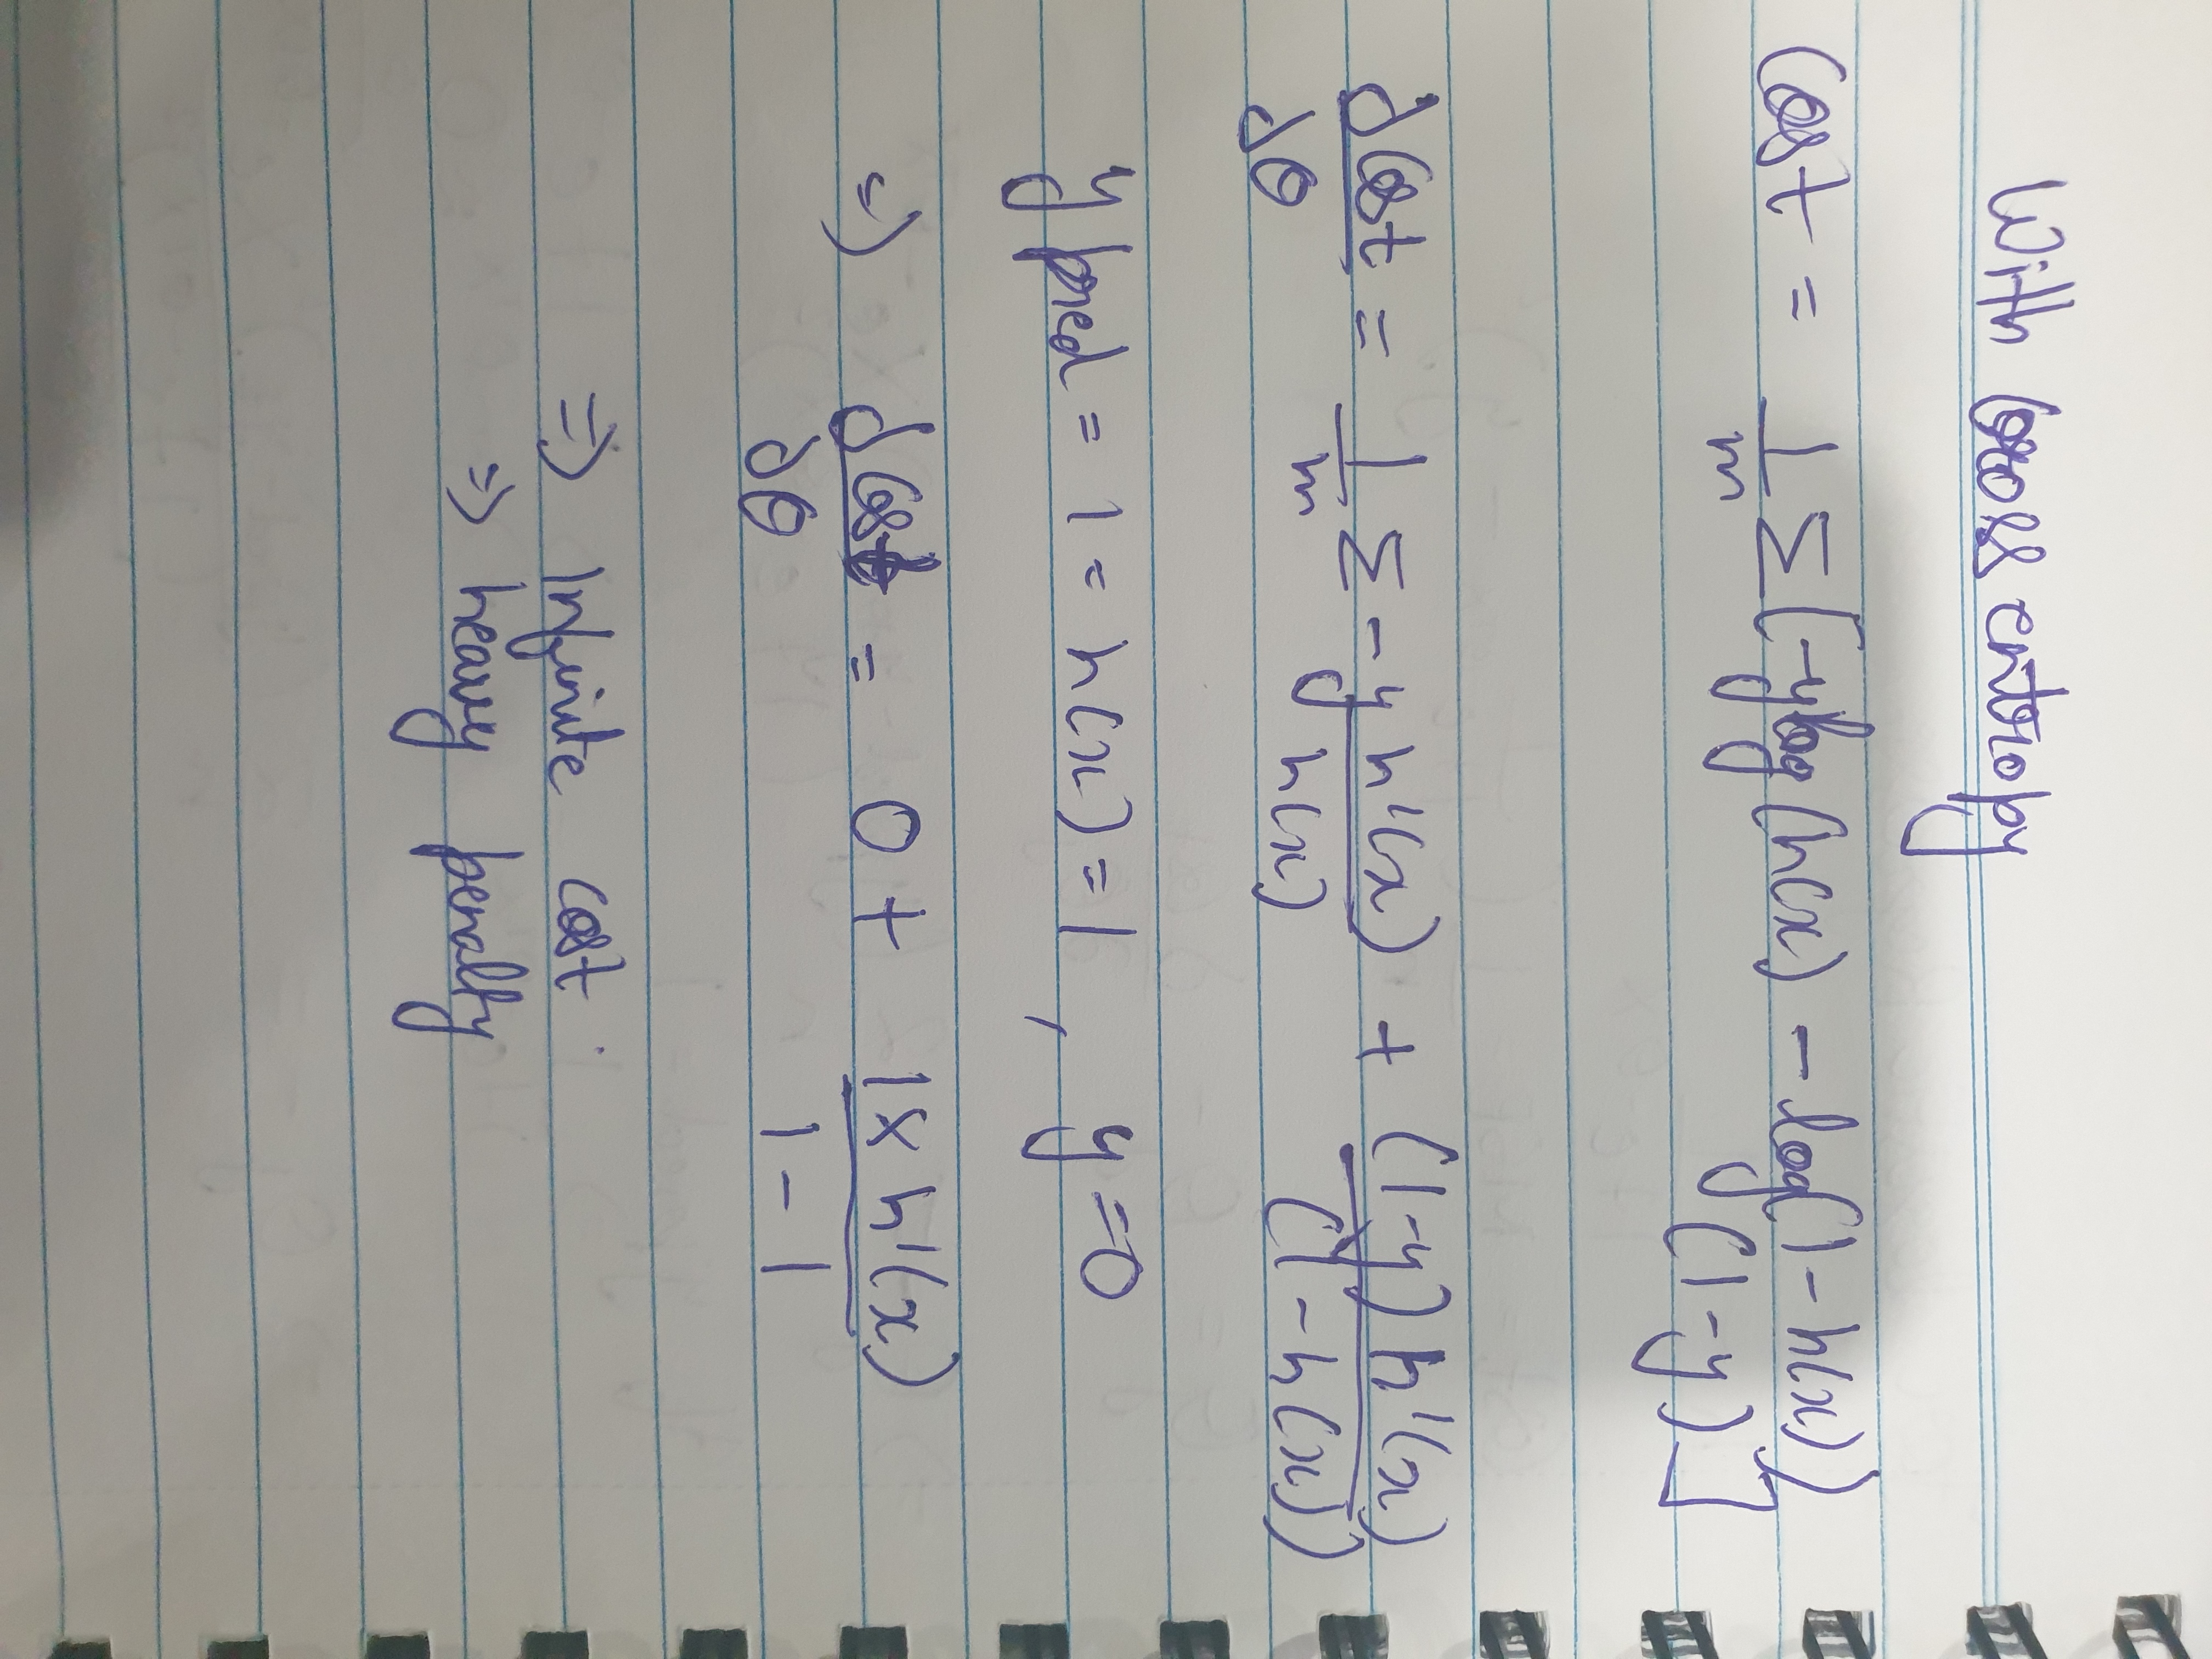 With Cross entropy
Cost = 1/m Σ[-ylog(h(x)) - log(1-h(x))(1-y)]
dCost/dθ = 1/m Σ - y h'(x)/h(x) + (1-y)h'(x)/(1-h(x))
y pred = 1 = h(x) = 1 , y = 0
=) dCost/dθ = 0 + 1 x h'(x)/1-1
=) Infinite cost.
=) heavy penalty